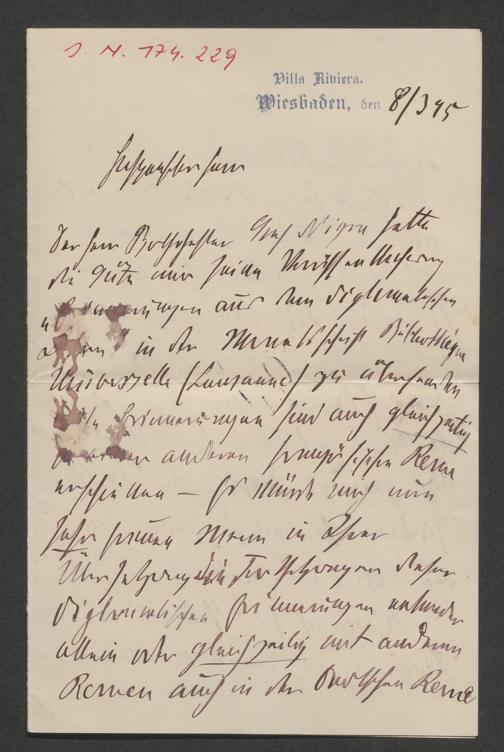 J. N. 174.229
Villa Riviera.
Wiesbaden, den 8/3 95
Hochgeehrter Herr
Der Herr Botschafter Graf Nigra hatte
die Güte mir seine Veröffentlichung
aus dem diplomatischen
in der Monatsschrift Bibliothèque
Universelle (Lausanne) zu übersenden
Erinnerungen sind auch gleichzeitig
anderen französischen Revue
erschienen – Es würde mich nun
sehr freuen wenn in Ihrer
Übersetzung die Fortsetzungen dieser
diplomatischen Erinnerungen entweder
allein oder gleichzeitig mit anderen
Revuen auch in der Deutschen Revue